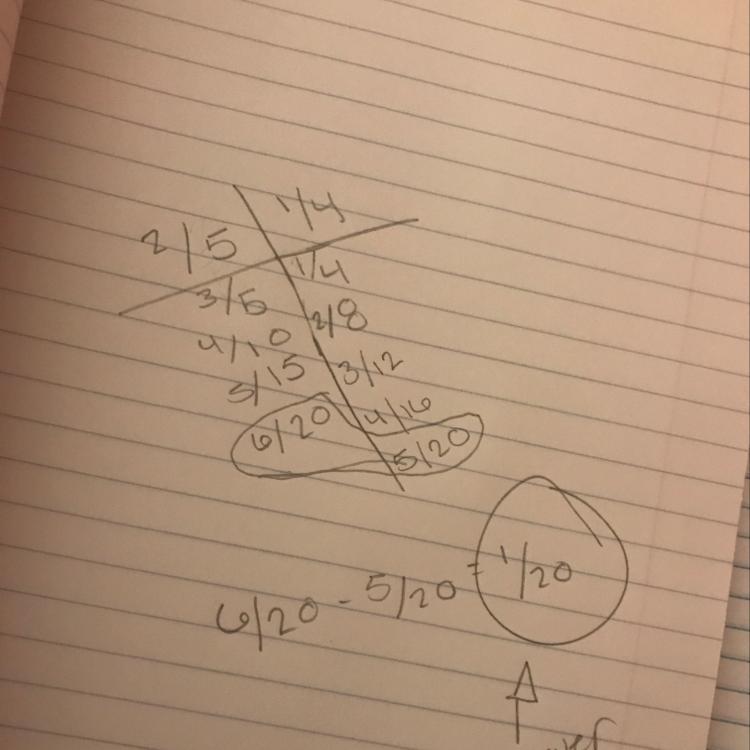 1/4
2/5 1/4
3/5 2/8
4/10 3/12
5/15 4/16
6/20 5/20
6/20 - 5/20 = 1/20